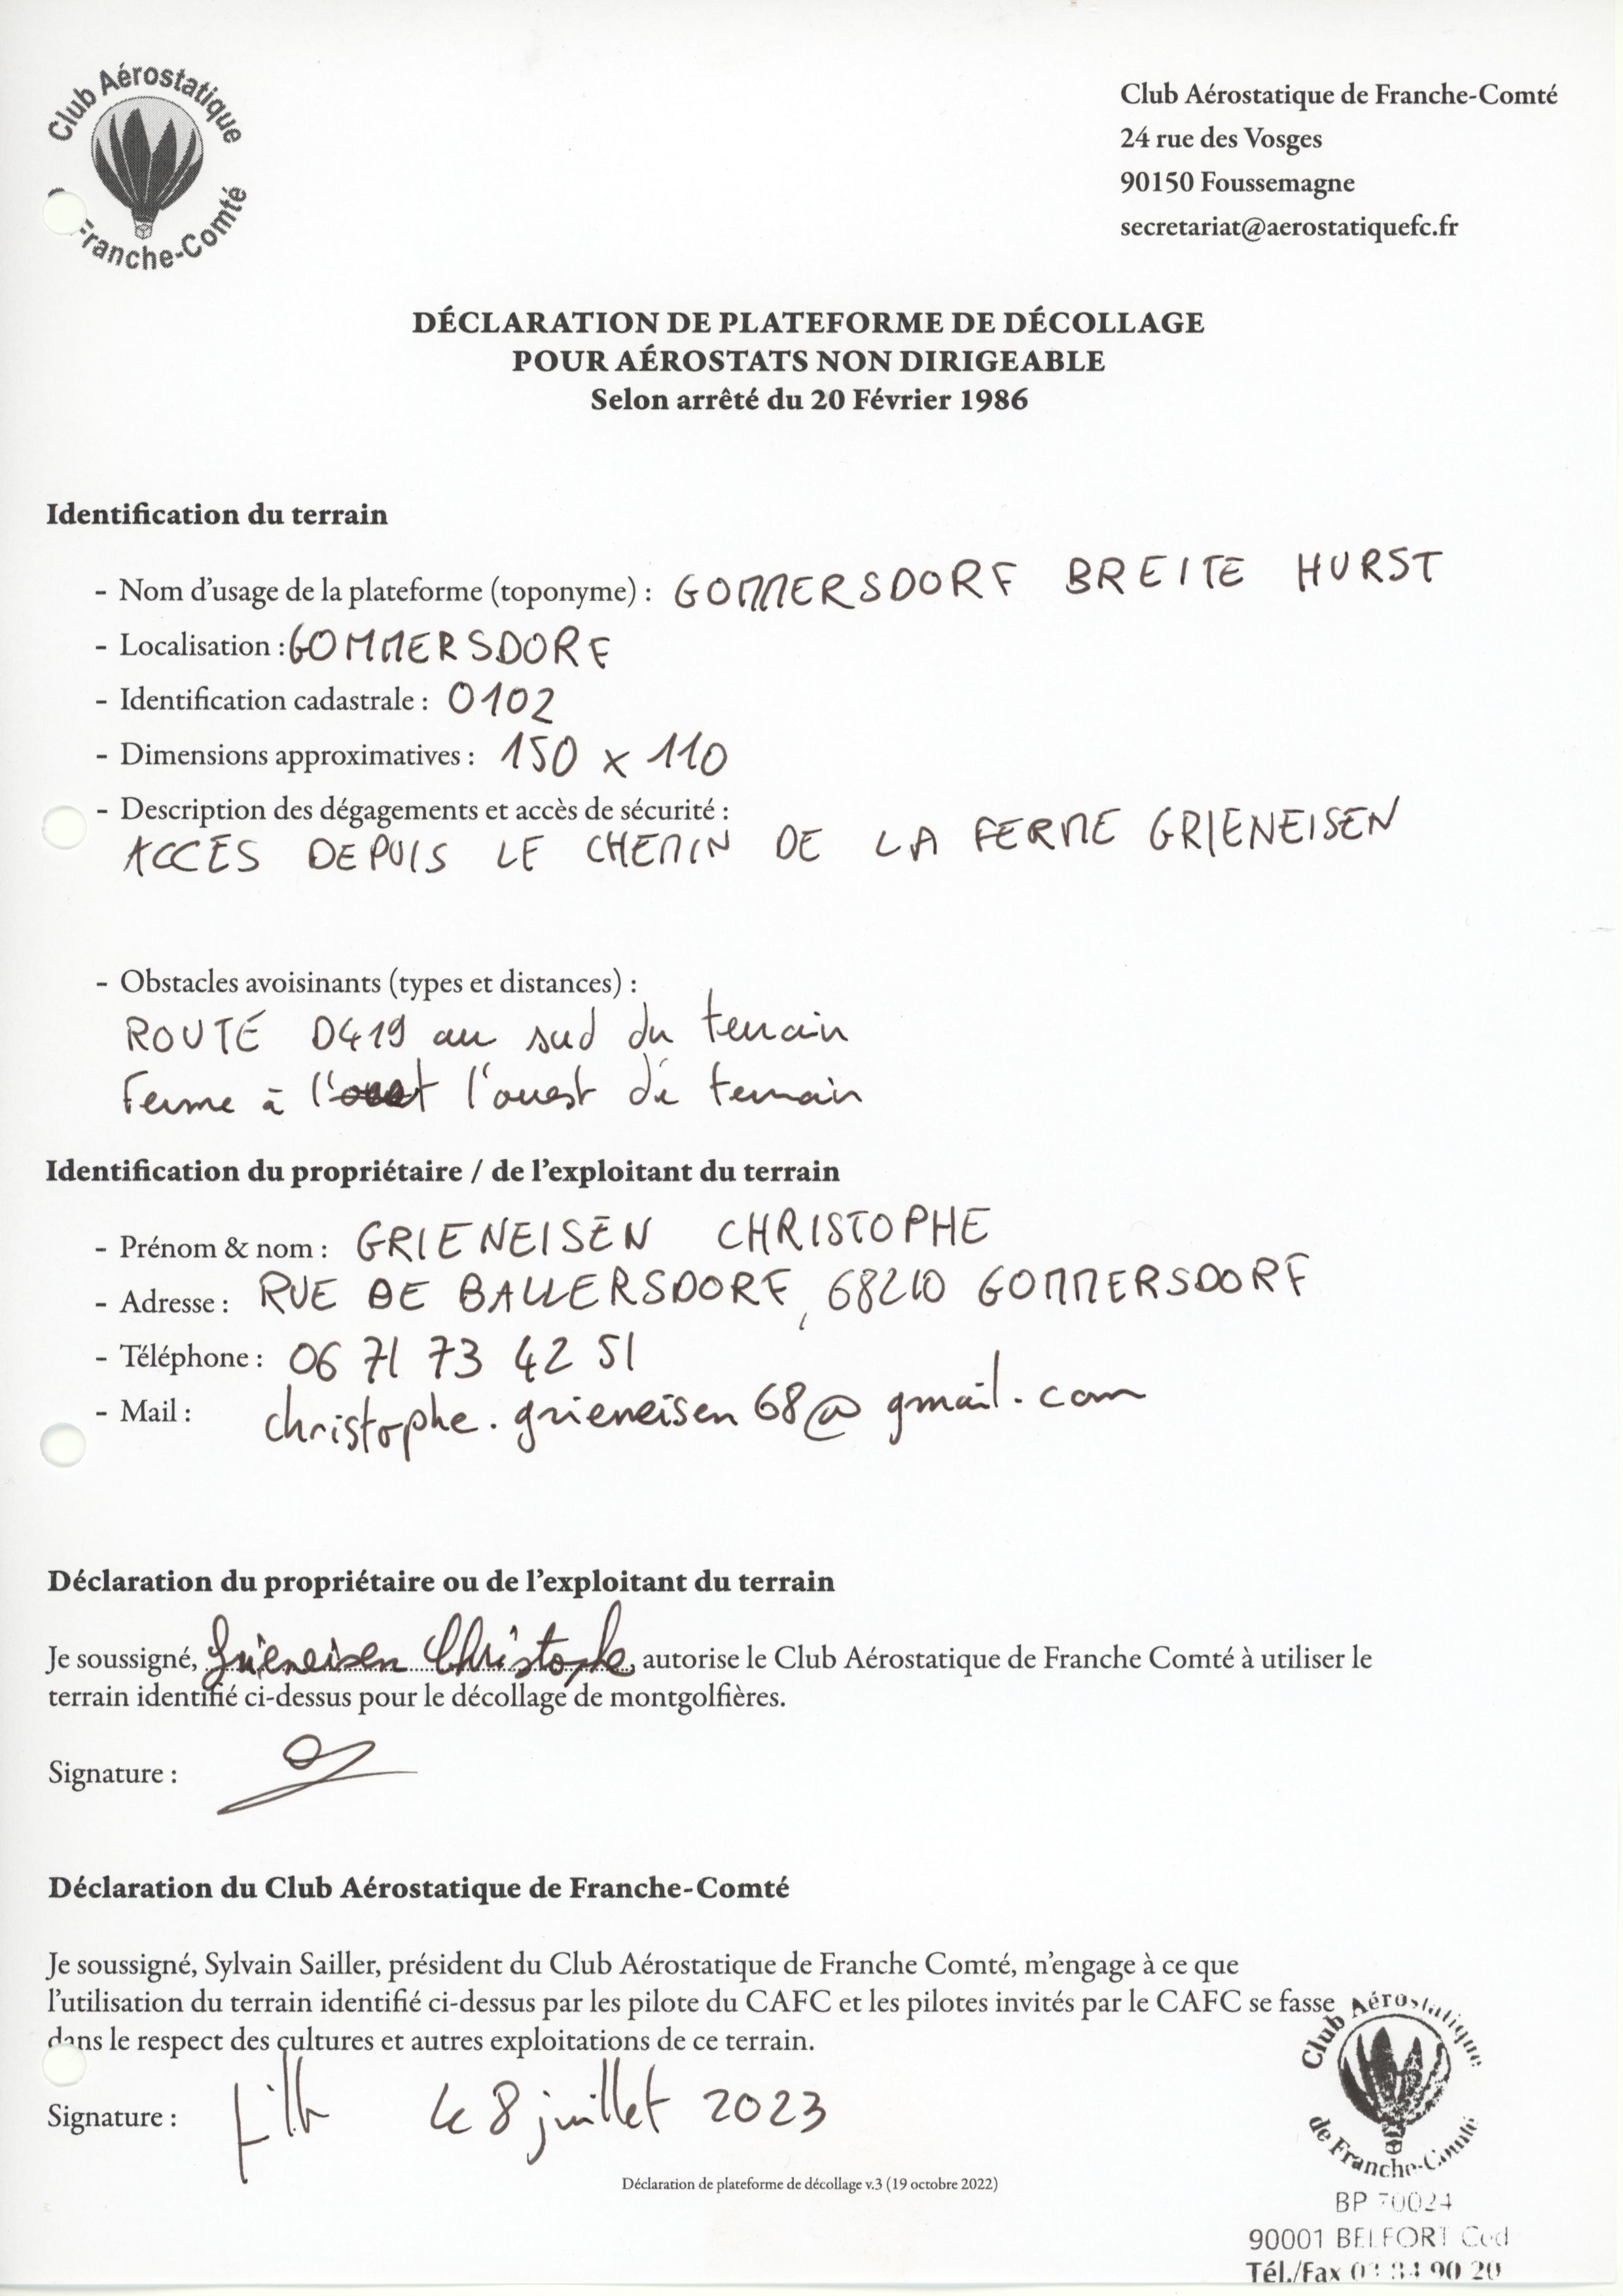 Club Aérostatique
Franche-Comté
Club Aérostatique de Franche-Comté
24 rue des Vosges
90150 Foussemagne
secretariat@aerostatiquefc.fr
DÉCLARATION DE PLATEFORME DE DÉCOLLAGE
POUR AÉROSTATS NON DIRIGEABLE
Selon arrêté du 20 Février 1986
Identification du terrain
- Nom d'usage de la plateforme (toponyme) : GOMMERSDORF BREITE HURST
- Localisation : GOMMERSDORF
- Identification cadastrale : 0102
- Dimensions approximatives : 150 x 110
- Description des dégagements et accès de sécurité :
ACCES DEPUIS LE CHEMIN DE LA FERME GRIENEISEN
- Obstacles avoisinants (types et distances) :
ROUTE D419 au sud du terrain
Ferme à l'ouest du terrain
Identification du propriétaire / de l'exploitant du terrain
- Prénom & nom : GRIENEISEN CHRISTOPHE
- Adresse : RUE DE BALLERSDORF, 68210 GOMMERSDORF
- Téléphone : 06 71 73 42 51
- Mail : christophe.grieneisen68@gmail.com
Déclaration du propriétaire ou de l'exploitant du terrain
Je soussigné, Grieneisen Christophe, autorise le Club Aérostatique de Franche Comté à utiliser le
terrain identifié ci-dessus pour le décollage de montgolfières.
Signature :
Déclaration du Club Aérostatique de Franche-Comté
Je soussigné, Sylvain Sailler, président du Club Aérostatique de Franche Comté, m'engage à ce que
l'utilisation du terrain identifié ci-dessus par les pilote du CAFC et les pilotes invités par le CAFC se fasse
dans le respect des cultures et autres exploitations de ce terrain.
Signature : le 8 juillet 2023
Club Aérostatique
de Franche-Comté
BP 70024
90001 BELFORT Ced
Tél./Fax 03 84 90 20
Déclaration de plateforme de décollage v.3 (19 octobre 2022)